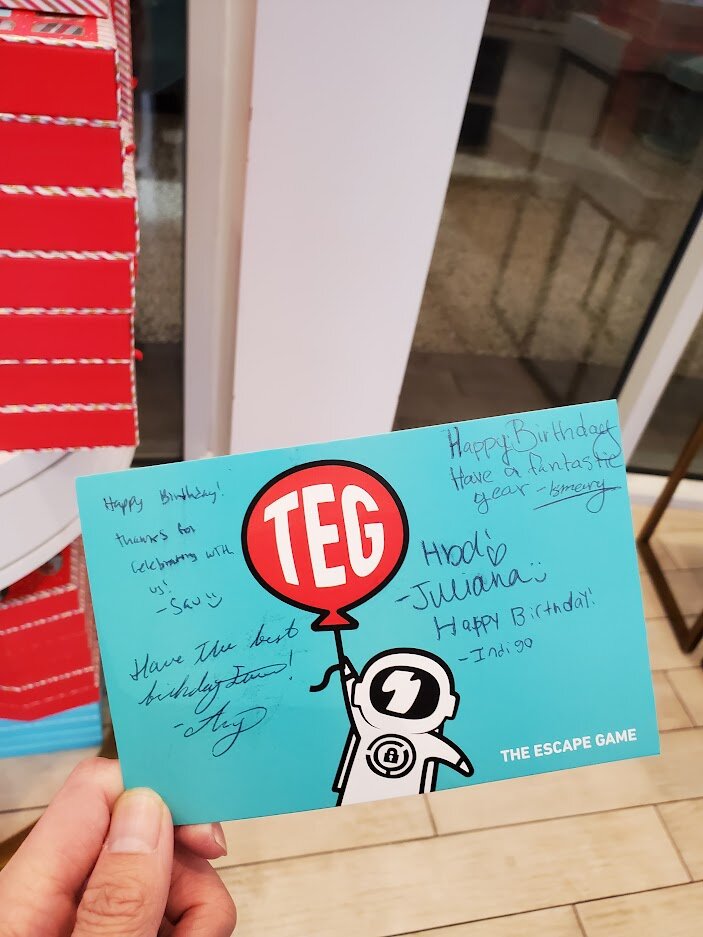 Happy Birthday!
thanks for
celebrating with
us!
-Sav
Have the best
birthday
TEG
Happy Birthday
Have a fantastic
year -Ismary
Hbd!
-Juliana
Happy Birthday!
-Indigo
THE ESCAPE GAME